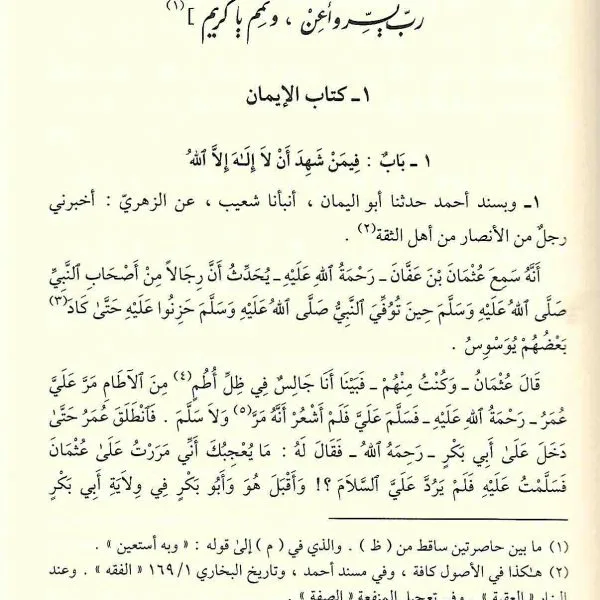 رب يسر وأعن ، وتمم يا كريم ](١)
١ـ كتاب الإيمان
١ ـ بَابٌ : فِيمَنْ شَهِدَ أَنْ لاَ إِلَـٰهَ إِلاَّ ٱللهُ
١ـ وبسند أحمد حدثنا أبو اليمان ، أنبأنا شعيب ، عن الزهريّ : أخبرني
رجلٌ من الأنصار من أهل الثقة(٢) .
أَنَّهُ سَمِعَ عُثْمَانَ بْنَ عَفَّانَ ـ رَحْمَةُ اللهِ عَلَيْهِ ـ يُحَدِّثُ أَنَّ رِجَالاً مِنْ أَصْحَابِ النَّبِيِّ
صَلَّى اللهُ عَلَيْهِ وَسَلَّمَ حِينَ تُوُفِّيَ ٱلنَّبِيُّ صَلَّى اللهُ عَلَيْهِ وَسَلَّمَ حَزِنُوا عَلَيْهِ حَتَّىٰ كَادَ(٣)
بَعْضُهُمْ يُوَسْوِسُ .
قَالَ عُثْمَانُ ـ وَكُنْتُ مِنْهُمْ ـ فَبَيْنَا أَنَا جَالِسٌ فِي ظِلِّ أُطُمٍ(٤) مِنَ ٱلآطَامِ مَرَّ عَلَيَّ
عُمَرُ ـ رَحْمَةُ اللهِ عَلَيْهِ ـ فَسَلَّمَ عَلَيَّ فَلَمْ أَشْعُرْ أَنَّهُ مَرَّ(٥) وَلاَ سَلَّمَ . فَٱنْطَلَقَ عُمَرُ حَتَّىٰ
دَخَلَ عَلَىٰ أَبِي بَكْرٍ ـ رَحِمَهُ ٱللهُ ـ فَقَالَ لَهُ : مَا يُعْجِبُكَ أَنِّي مَرَرْتُ عَلَىٰ عُثْمَانَ
فَسَلَّمْتُ عَلَيْهِ فَلَمْ يَرُدَّ عَلَيَّ ٱلسَّلاَمَ ؟! وَأَقْبَلَ هُوَ وَأَبُو بَكْرٍ فِي وِلاَيَةِ أَبِي بَكْرٍ
(١) ما بين حاصرتين ساقط من ( ظ ) . والذي في ( م ) إلىٰ قوله : « وبه أستعين » .
(٢) هـٰكذا في الأصول كافة ، وفي مسند أحمد ، وتاريخ البخاري ١/ ١٦٩ « الفقه » . وعند
البزار « العقبة » ، وفي تعجيل المنفعة « الصفة » .